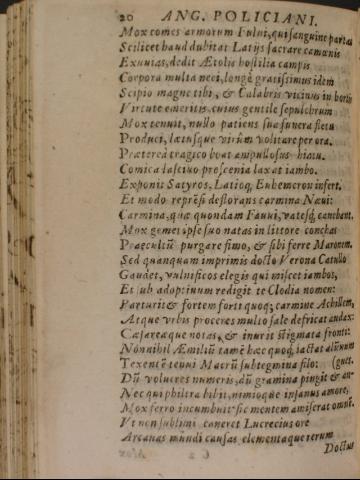 20 ANG. POLICIANI.
Mox comes armorum Fului, qui sanguine partas
Scilicet haud dubitat Latijs sacrare camœnis
Exuuias, dedit Ætolis hostilia campis
Corpora multa neci, longè gratissimus idem
Scipio magne tibi, & Calabris vicinus in hortis
Virtute emeritis. cuius gentile sepulchrum
Mox tenuit, nullo patiens sua funera fletu
Produci, lætusque virûm volitare per ora.
Præterea tragico boat ampullosus hiatu.
Comica lasciuo proscenia laxat iambo.
Exponit Satyros, Latioq, Euhemeron infert.
Et modo reprẽsi deflorans carmina Næui:
Carmina, quæ quondam Fauui, vatesq́, canebant.
Mox gemet ipse suo natas in littore conchas
Præcultũ purgare fimo, & sibi ferre Maronem.
Sed quanquam imprimis docto Verona Catullo
Gaudet, vulnificos elegis qui miscet iambos,
Et sub adoptiuum redigit te Clodia nomen:
Parturit & fortem forti quoq; carmine Achillem,
Atque vrbis proceres multo sale defricat audax:
Cæsareaque notas, & inurit stigmata fronti:
Nonnihil Æmiliũ tamẽ hæc quoq, iactat alũnum
Texentẽ tenui Macrũ subtegmina filo: (gues.
Dũ volucres numeris, dũ gramina pingit & an-
Nec qui philtra bibit, nimioque insanus amore,
Mox ferro incumbuit: sic mentem amiserat omnẽ.
Vt non sublimi caneret Lucrecius ore
Arcanas mũndi causas elementaque rerum
Doctus